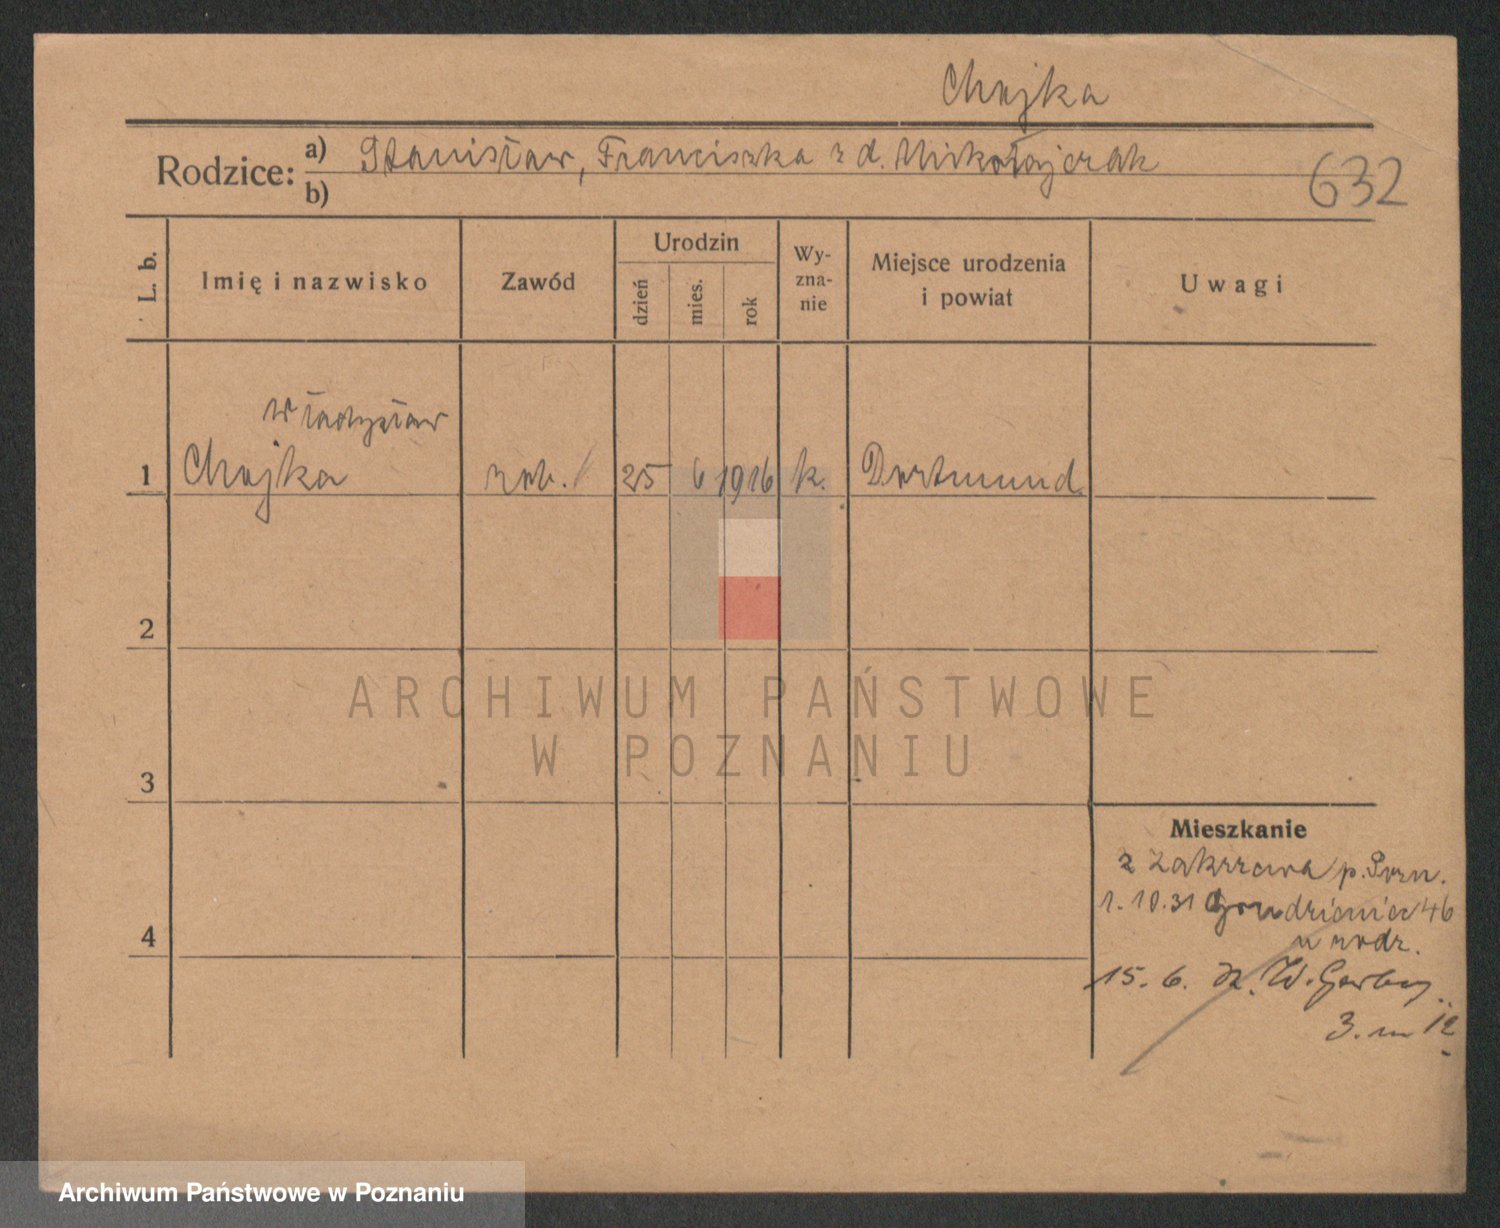 Chojka
Rodzice: a) Stanisław, Franciszka z d. Mikołajczak
b)
632
L. b.
Imię i nazwisko
Zawód
Urodzin
dzień
mies.
rok
Wy-
zna-
nie
Miejsce urodzenia
i powiat
Uwagi
Władysław
1 Chojka rob. 25 6 1916 k. Dortmund
2
3
4
Mieszkanie
z Zakrzewa p. Pozn.
1.10.31 46
u rodz.
15. 6. W. Garbary
3. m 12
ARCHIWUM PAŃSTWOWE
W POZNANIU
Archiwum Państwowe w Poznaniu